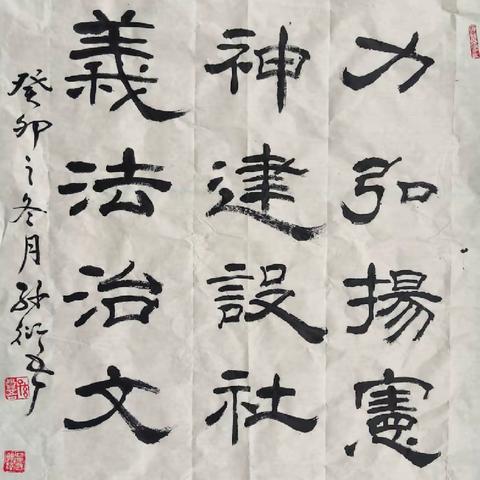 力弘揚憲
神建設社
義法治文
癸卯之冬月孫衍